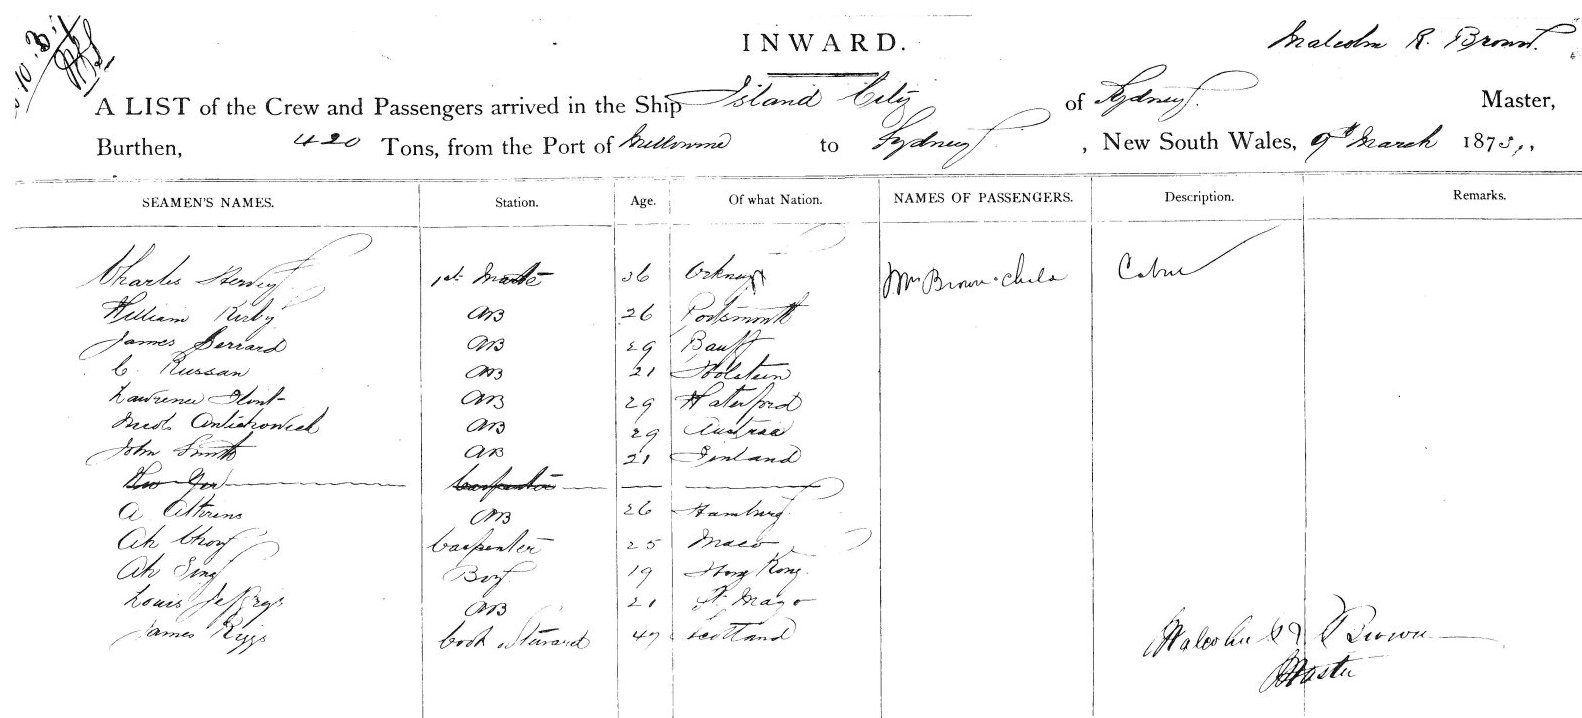 10.3.
INWARD.
Malcolm R. Brown.
A LIST of the Crew and Passengers arrived in the Ship Island City of Sydney. Master,
Burthen, 420 Tons, from the Port of Melbourne to Sydney , New South Wales, 9th March 1875,,
SEAMEN'S NAMES. Station. Age. Of what Nation. NAMES OF PASSENGERS. Description. Remarks.
Charles Hervey 1st Mate 36 Orkney Mrs Brown & Child Cabin
William Kirby AB 26 Portsmouth
James Gerrard AB 29 Banff
C. Russan AB 21 Holstein
Lawrence Flint AB 29 Waterford
AB 29 Austria
John Smith AB 21 Finland
Carpenter
A Atkins AB 26 Hamburg
Ah Chong Carpenter 25 Macao
Ah Sing Boy 19 Hong Kong.
Louis Jeffreys AB 21 St. Mago
James Riggs Cook & Steward 47 Scotland
Malcolm R Brown
Master